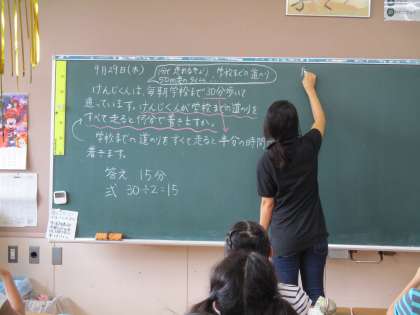 9月29日(木)
学校までの道のり
けんじくんは、毎朝学校まで30分歩いて
通っています。けんじくんが学校までの道のりを
すべて走ると何分で着きますか。
学校までの道のりをすべて走ると半分の時間
着きます。
答え 15分
式 30÷2=15